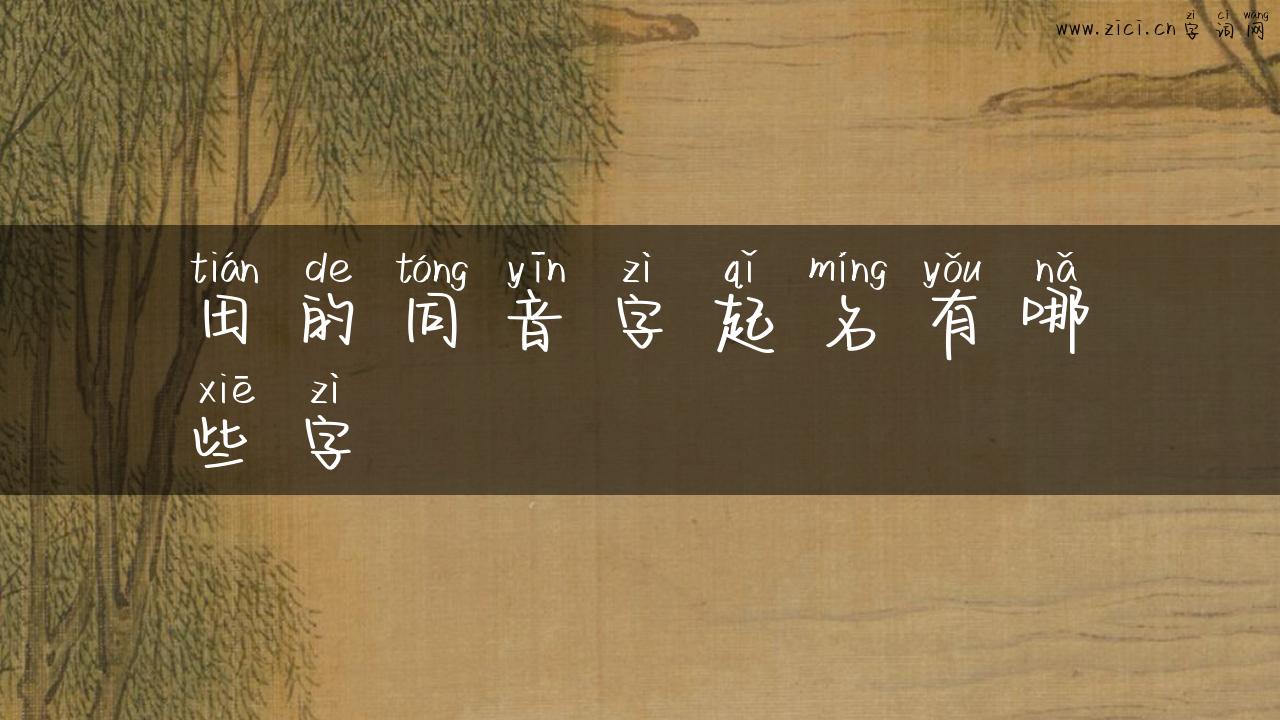 zì cí wǎng
www.zici.cn字词网
tián de tóng yīn zì qǐ míng yǒu nǎ
田的同音字起名有哪
xiē zì
些字